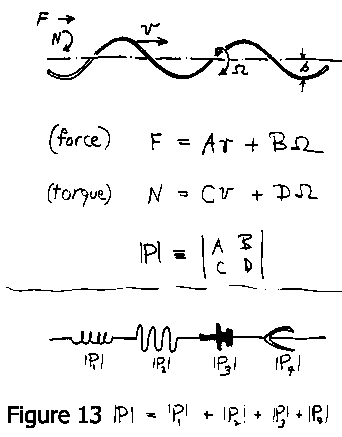 F →
N v
Ω b
(force) F = Av + BΩ
(torque) N = Cv + DΩ
|P| ≡ | A B |
| C D |
|P₁| |P₂| |P₃| |P₄|
Figure 13 |P| = |P₁| + |P₂| + |P₃| + |P₄|